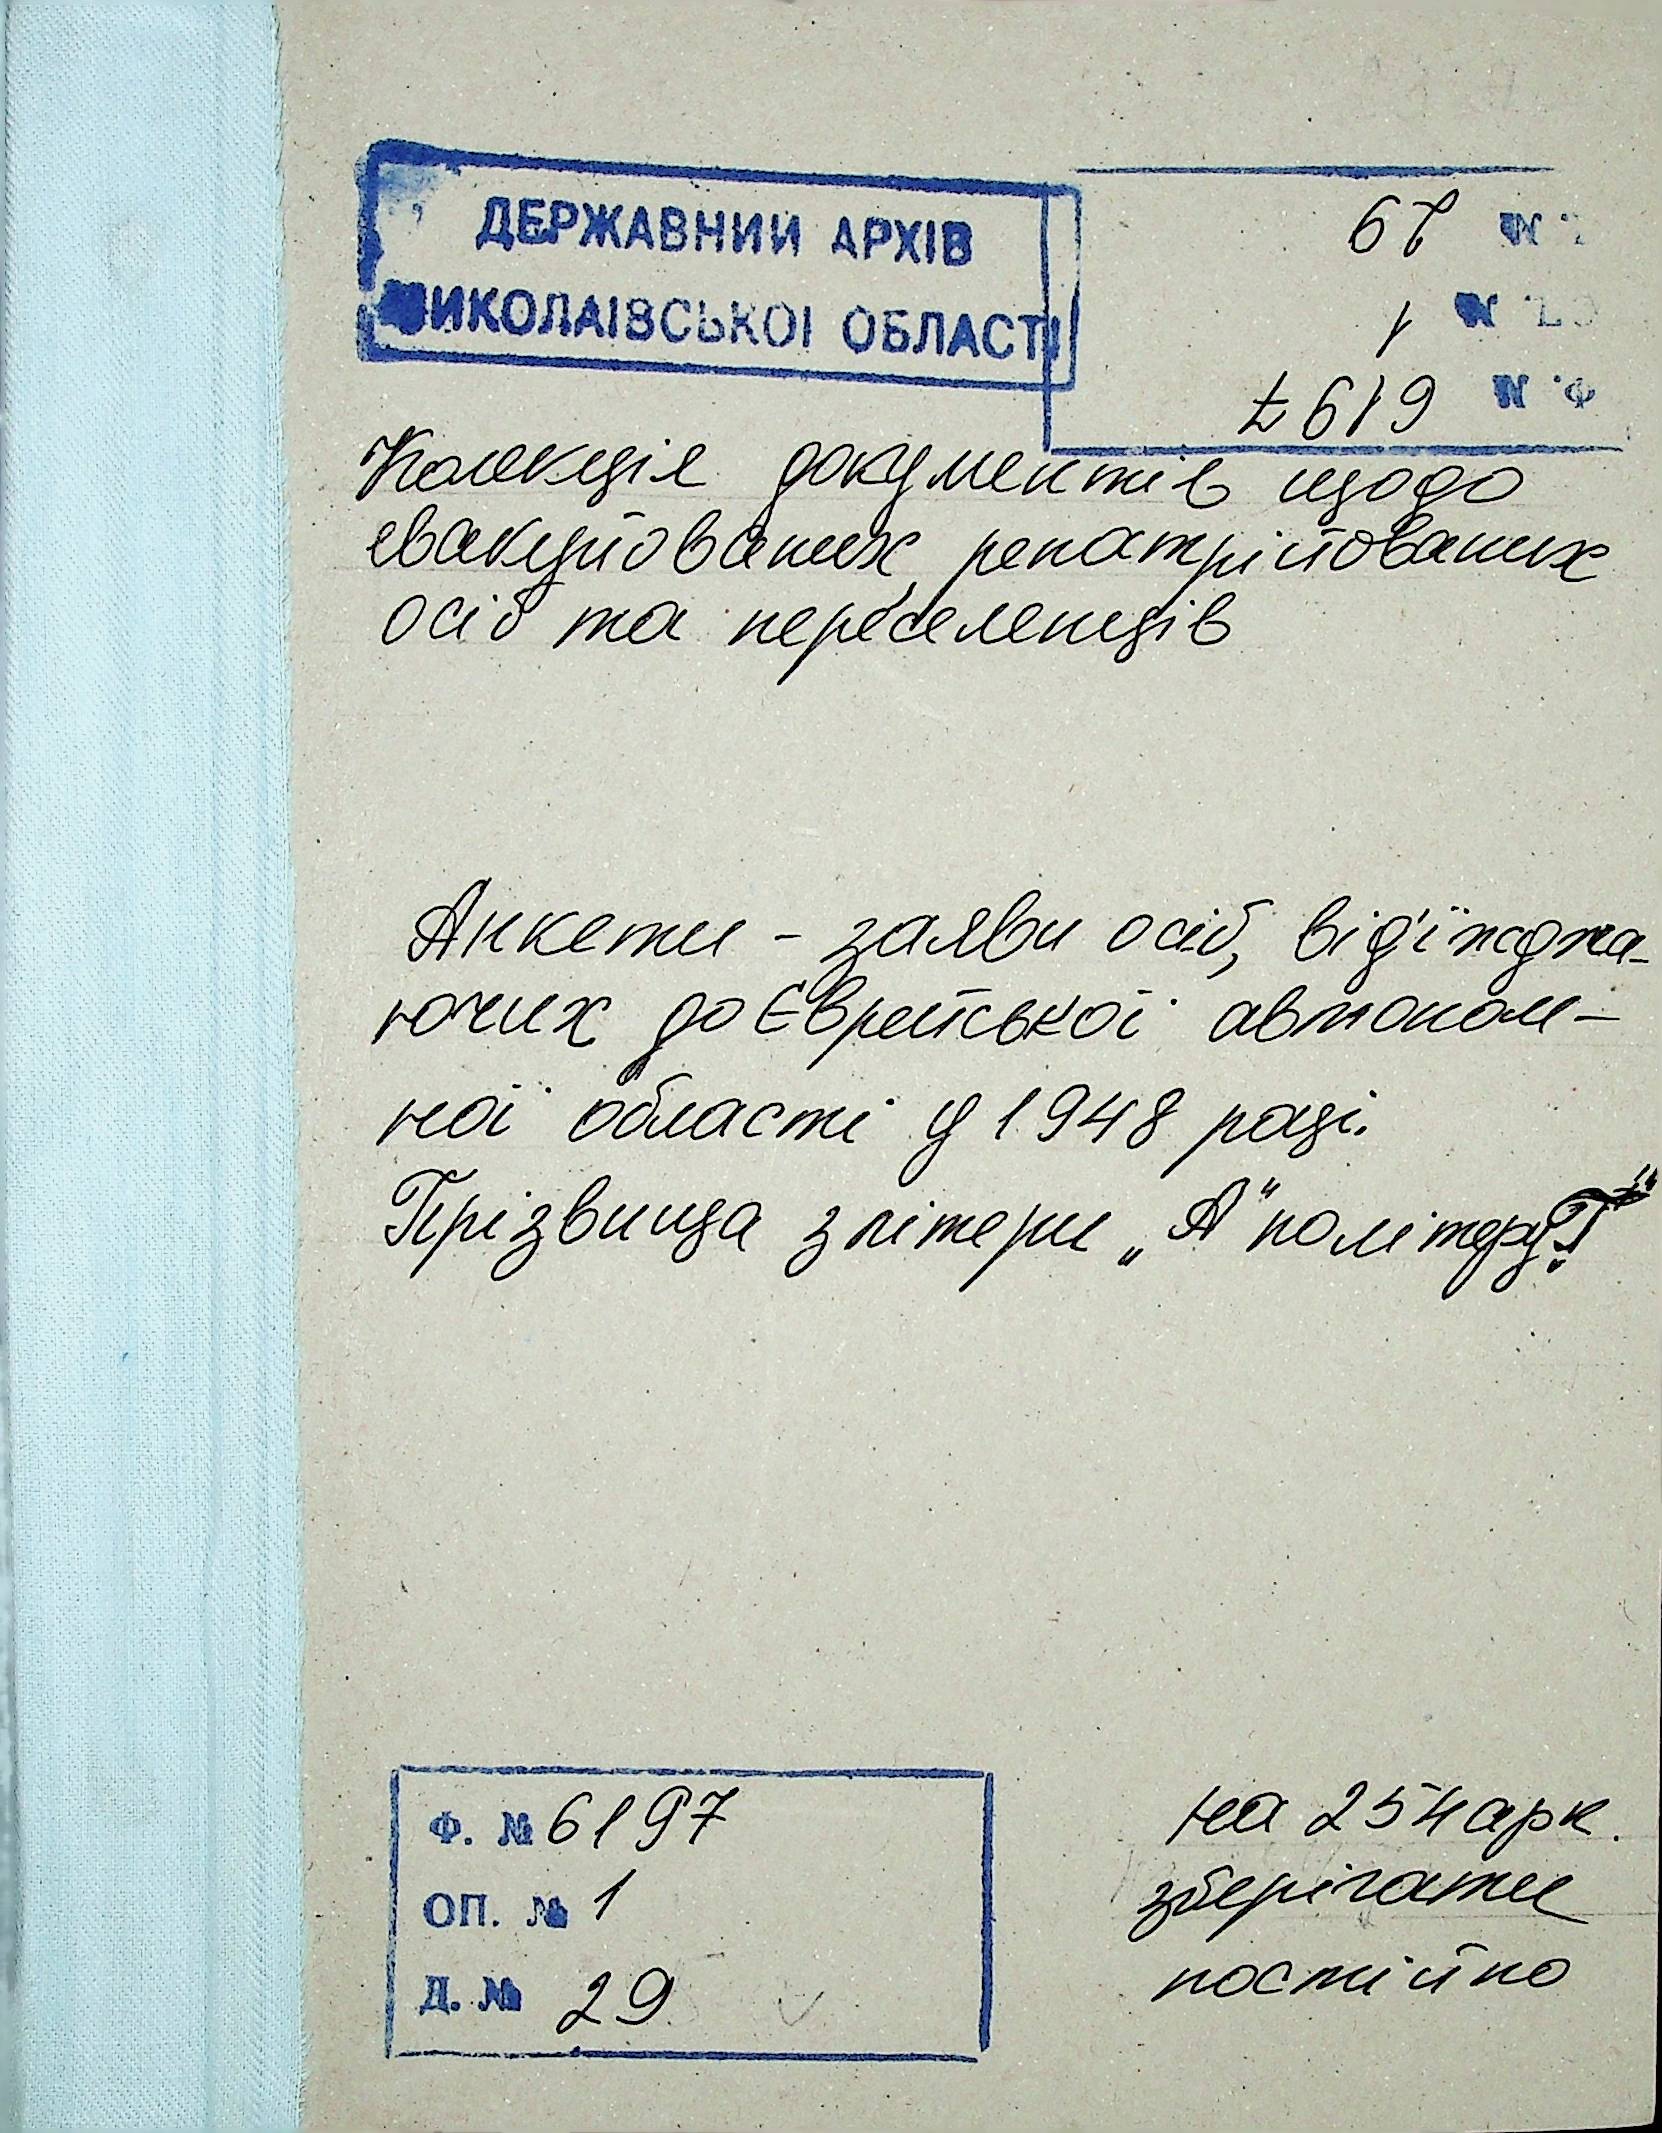 ДЕРЖАВНИЙ АРХІВ
МИКОЛАЇВСЬКОЇ ОБЛАСТІ
Д. № 29
ОП. № 1
Ф. № 6197
Колекція документів щодо
евакуйованих, репатрійованих
осіб та переселенців
Анкети - заяви осіб, від'їжджа-
ючих до Єврейської автоном-
ної області у 1948 році.
Прізвища з літери „А“ по літеру „Г“
Ф. № 6197
ОП. № 1
Д. № 29
на 254 арк.
зберігати
постійно